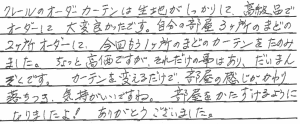 クレールのオーダカーテンは生地がしっかりして、高級品で
オーダーして大変良かったです。自分の部屋3ヶ所のまどの
2ヶ所オーダーして、今回もう1ヶ所のまどのカーテンをたのみ
ました。ちょっと高価ですが、それだけの事はあり、だいまん
ぞくです。カーテンを変えるだけで、部屋の感じがかわり
落ちつき、気持がいいですね。部屋をかたずけるように
なりましたよ! ありがとうございました。